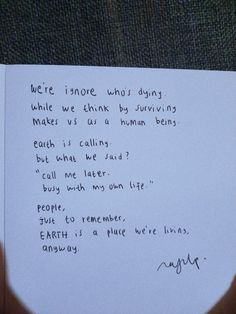 we're ignore who's dying.
while we think by surviving
makes us as a human being.
earth is calling.
but what we said?
"call me later.
busy with my own life."
people,
just to remember,
EARTH is a place we're living,
anyway.